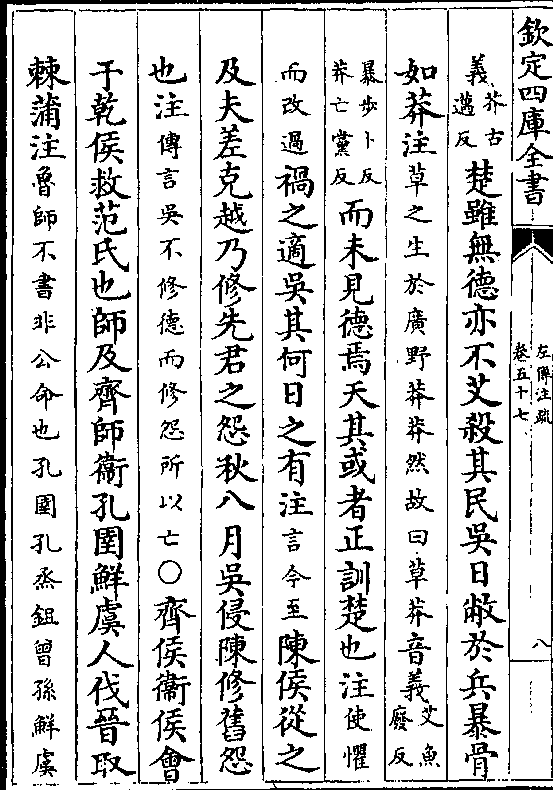 欽定四庫全書
左傳注疏
卷五十七
八
義芥古
邁反
楚雖無德亦不艾殺其民吳日敝於兵暴骨
如莽注草之生於廣野莽莽然故曰草莽音義艾魚
廢反
暴步卜反
莽亡黨反
而未見德焉天其或者正訓楚也注使懼
而改過禍之適吳其何日之有注言今至陳侯從之
及夫差克越乃修先君之怨秋八月吳侵陳修舊怨
也注傳言吳不修德而修怨所以亡○齊侯衛侯會
于乾侯救范氏也師及齊師衛孔圉鮮虞人伐晉取
棘蒲注魯師不書非公命也孔圉孔烝鉏曾孫鮮虞